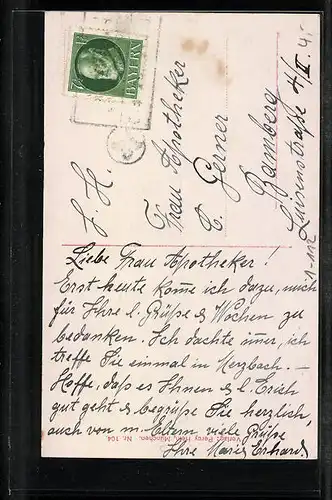 7½
BAYERN
S. H.
Frau Apotheker
C. Gerner
Bamberg
Luisenstraße 4/II
Liebe Frau Apotheker!
Erst heute kome ich dazu, mich
für Ihre l. Grüße & Wochen zu
bedanken. Ich dachte imer, ich
treffe Sie einmal in Merzbach. –
Hoffe, daß es Ihnen & l. Erich
gut geht & begrüße Sie herzlich,
auch von m. Eltern viele Grüße
Ihre Marie Erhard
Verlag: Percy Hein, München. Nr. 104